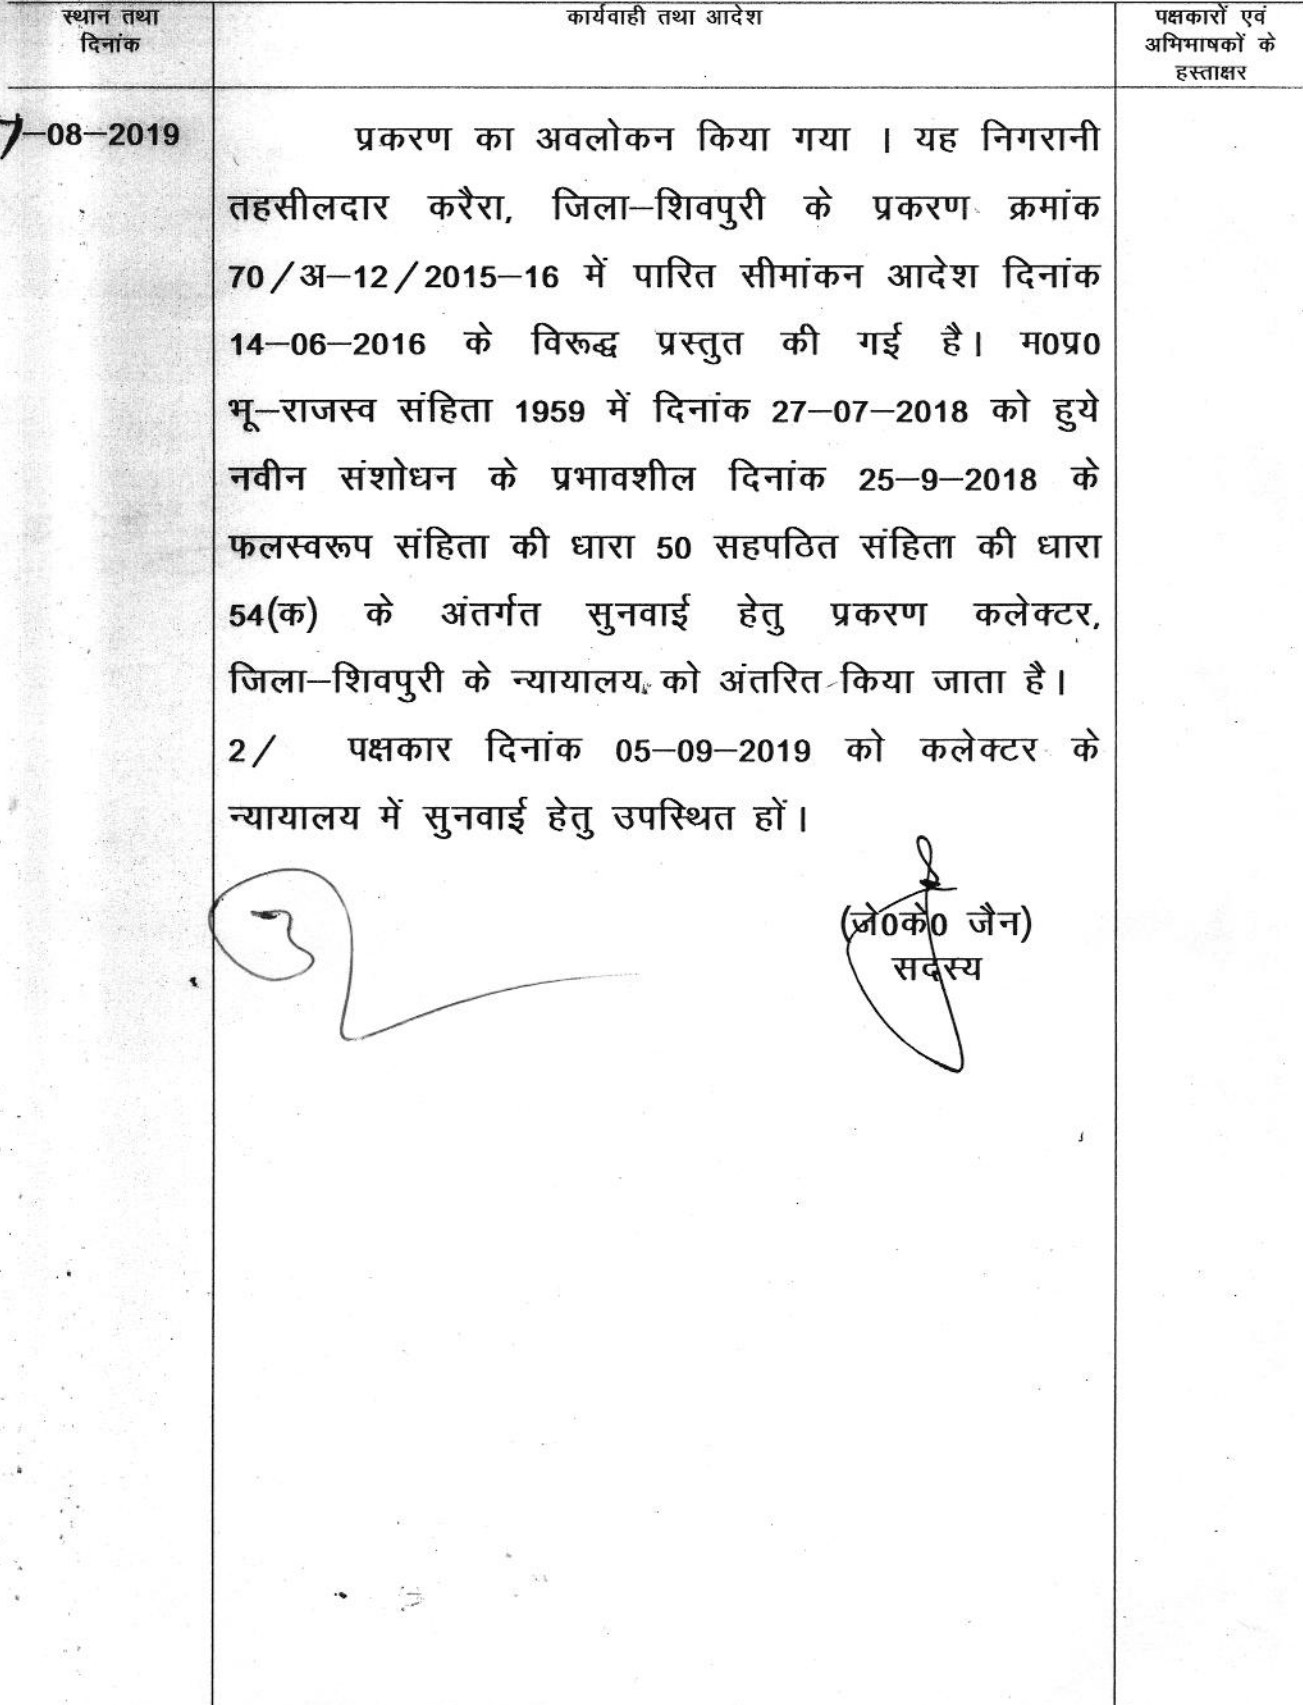 स्थान तथा
दिनांक
कार्यवाही तथा आदेश
पक्षकारों एवं
अभिभाषकों के
हस्ताक्षर
7–08–2019
प्रकरण का अवलोकन किया गया । यह निगरानी
तहसीलदार करैरा, जिला–शिवपुरी के प्रकरण क्रमांक
70/अ–12/2015–16 में पारित सीमांकन आदेश दिनांक
14–06–2016 के विरूद्ध प्रस्तुत की गई है। म0प्र0
भू–राजस्व संहिता 1959 में दिनांक 27–07–2018 को हुये
नवीन संशोधन के प्रभावशील दिनांक 25–9–2018 के
फलस्वरूप संहिता की धारा 50 सहपठित संहिता की धारा
54(क) के अंतर्गत सुनवाई हेतु प्रकरण कलेक्टर,
जिला–शिवपुरी के न्यायालय को अंतरित किया जाता है।
2/ पक्षकार दिनांक 05–09–2019 को कलेक्टर के
न्यायालय में सुनवाई हेतु उपस्थित हों।
(जे0के0 जैन)
सदस्य